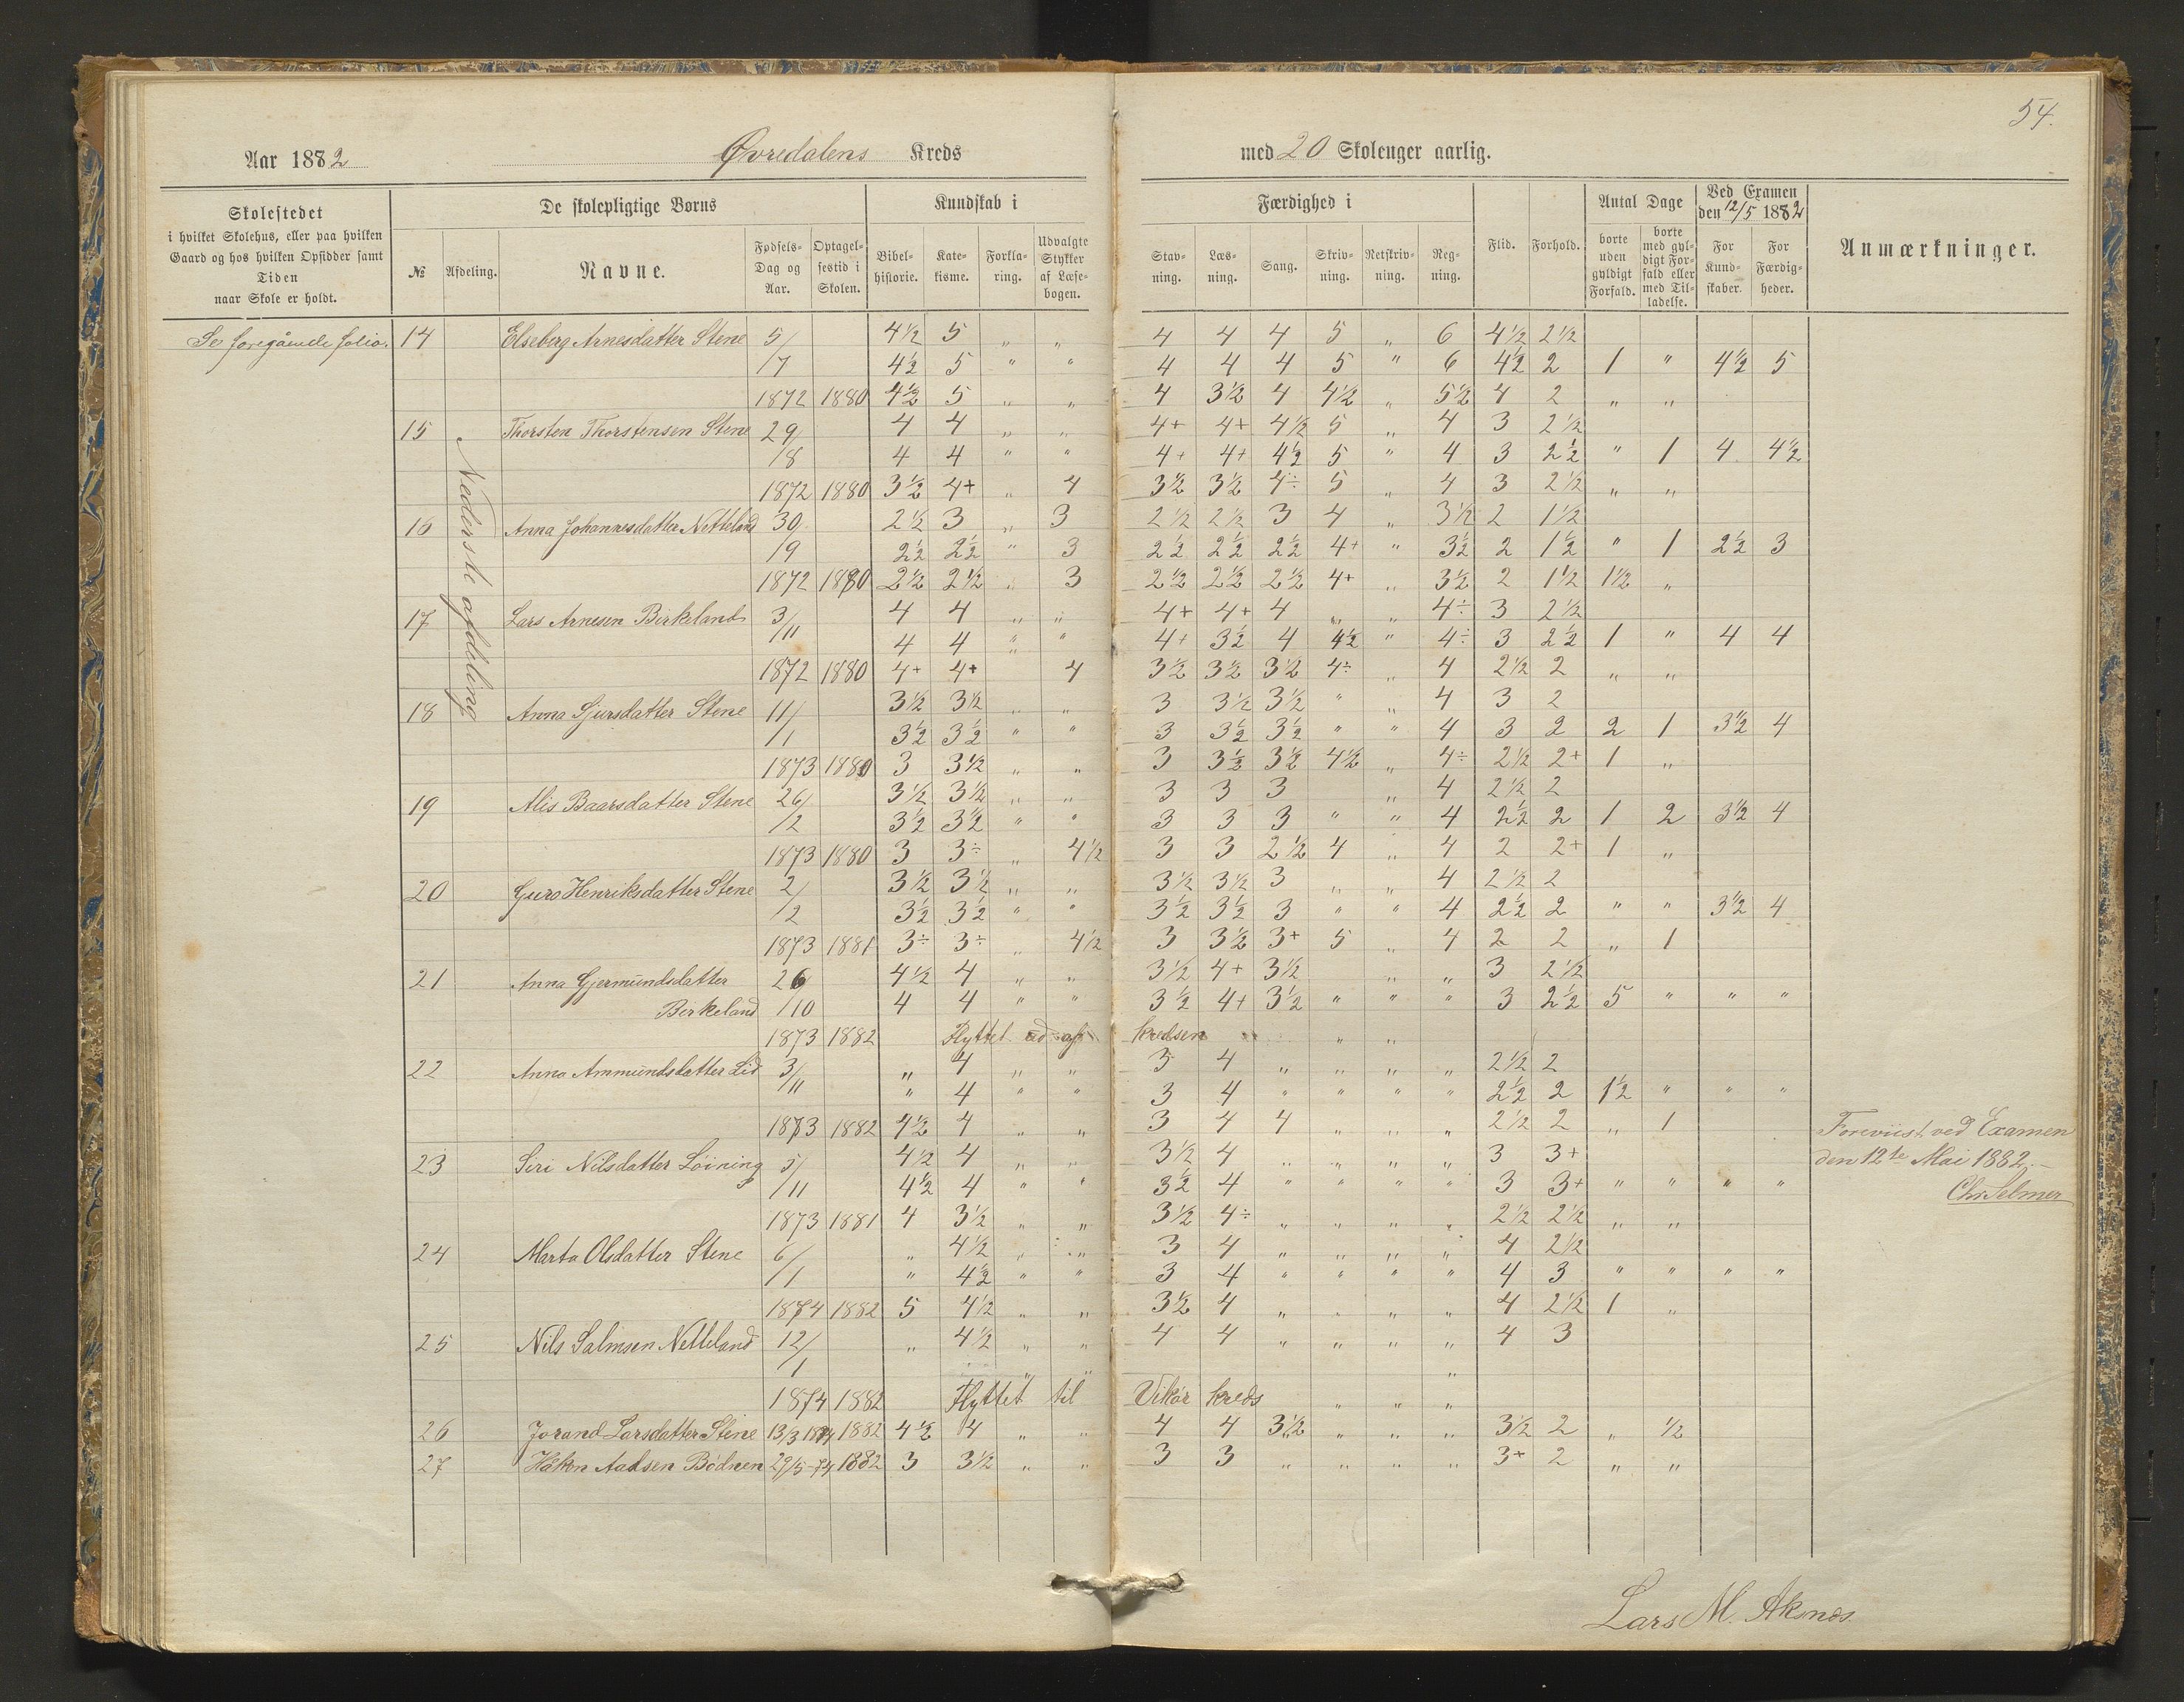 54.
Aar 1882 Øvredalens Kreds med 20 Skoleuger aarlig.
Skolestedet
i hvilket Skolehus, eller paa hvilken
Gaard og hos hvilken Opsidder samt
Tiden
naar Skole er holdt.
De skolepligtige Børns
№ Afdeling. Navne. Fødsels-Dag og Aar. Optagelsestid i Skolen.
Kundskab i
Bibelhistorie. Katekisme. Forklaring. Udvalgte Stykker af Læsebogen.
Færdighed i
Stavning. Læsning. Sang. Skrivning. Retskrivning. Regning.
Flid. Forhold.
Antal Dage
borte uden gyldigt Forfald. borte med gyldigt Forfald eller med Tilladelse.
Ved Examen den 12/5 1882
For Kundskaber. For Færdigheder.
Anmærkninger.
Se foregående folio.
Nederste afdeling
14 Elseberg Arnesdatter Stene 5/ 4½ 5 " " 4 4 4 5 " 6 4½ 2½
/7 4½ 5 " " 4 4 4 5 " 6 4½ 2 1 " 4½ 5
1872 1880 4½ 5 " " 4 3½ 4 4½ " 5½ 4 2 " "
15 Thorsten Thorstensen Stene 29/ 4 4 " " 4+ 4+ 4½ 5 " 4 3 2½
/8 4 4 " " 4+ 4+ 4½ 5 " 4 3 2½ " 1 4 4½
1872 1880 3½ 4+ " 4 3½ 3½ 4÷ 5 " 4 3 2½ " "
16 Anna Johannesdatter Netteland 30 2½ 3 " 3 2½ 2½ 3 4 " 3½ 2 1½
/9 2½ 2½ " 3 2½ 2½ 2½ 4+ " 3½ 2 1½ " 1 2½ 3
1872 1880 2½ 2½ " 3 2½ 2½ 2½ 4+ " 3½ 2 1½ 1½ "
17 Lars Arnesen Birkeland 3/ 4 4 " " 4+ 4+ 4 " " 4÷ 3 2½
/11 4 4 " " 4+ 3½ 4 4½ " 4÷ 3 2½ 1 " 4 4
1872 1880 4+ 4+ 4 3½ 3½ 3½ 4÷ " 4 2½ 2 " "
18 Anna Sjursdatter Stene 11/ 3½ 3½ " " 3 3½ 3½ " " 4 3 2
/1 3½ 3½ " " 3 3½ 3½ " " 4 3 2 2 1 3½ 4
1873 1880 3 3½ " " 3 3½ 3½ 4½ " 4÷ 2½ 2+ 1 "
19 Alis Baarsdatter Stene 26/ 3½ 3½ " " 3 3 3 " 4 2½ 2
/2 3½ 3½ " " 3 3 3 " " 4 2½ 2 1 2 3½ 4
1873 1880 3 3÷ " 4½ 3 3 2½ 4 " 4 2 2+ 1 "
20 Guro Henriksdatter Stene 2/ 3½ 3½ " " 3½ 3½ 3 " " 4 2½ 2
/2 3½ 3½ " " 3½ 3½ 3 " " 4 2½ 2 " " 3½ 4
1873 1881 3÷ 3÷ " 4½ 3 3½ 3+ 5 " 4 2 2 " 1
21 Anna Gjermundsdatter 26 4½ 4 " " 3½ 4+ 3½ " " 3 2½
Birkeland /10 4 4 " " 3½ 4+ 3½ " " " 3 2½ 5 " " "
1873 1882 Flyttet ud af kredsen " "
22 Anna Ammundsdatter Lid 3/ " 4 " " 3 4 " " " " 2½ 2
/11 " 4 " " 3 4 " " " " 2½ 2 1½ " " "
1873 1882 4½ 4 " " 3 4 4 " " " 2½ 2 " 1
23 Siri Nilsdatter Löining 5/ 4½ 4 " " 3½ 4 " " " " 3 3+
/11 4½ 4 " " 3½ 4 " " " " 3 3+ " " " "
1873 1881 4 3½ " " 3½ 4÷ " " " " 2½ 2½ " "
24 Marta Olsdatter Stene 6/ " 4½ " " 3 4 " " " " 4 2½
/1 " 4½ " " 3 4 " " " " 4 3 " " " "
1874 1882 5 4½ " " 3½ 4 " " " " 4 2½ 1 "
25 Nils Salmsen Netteland 12/ " 4½ " " 4 4 " " " " 4 3
/1 " " "
1874 1882 Flyttet til Vikör kreds " " "
26 Jorand Larsdatter Stene 13/3 1874 1882 4½ 4 " " 4 4 3½ " " " 3½ 2 " ½
27 Håkon Aadsen Bödnen 29/5-74 1882 3 3½ " " 3 3 " " " " 3+ 2 " "
Foreviist ved Examen
den 12te Mai 1882.
Chr Selmer
Lars M. Aksnes.